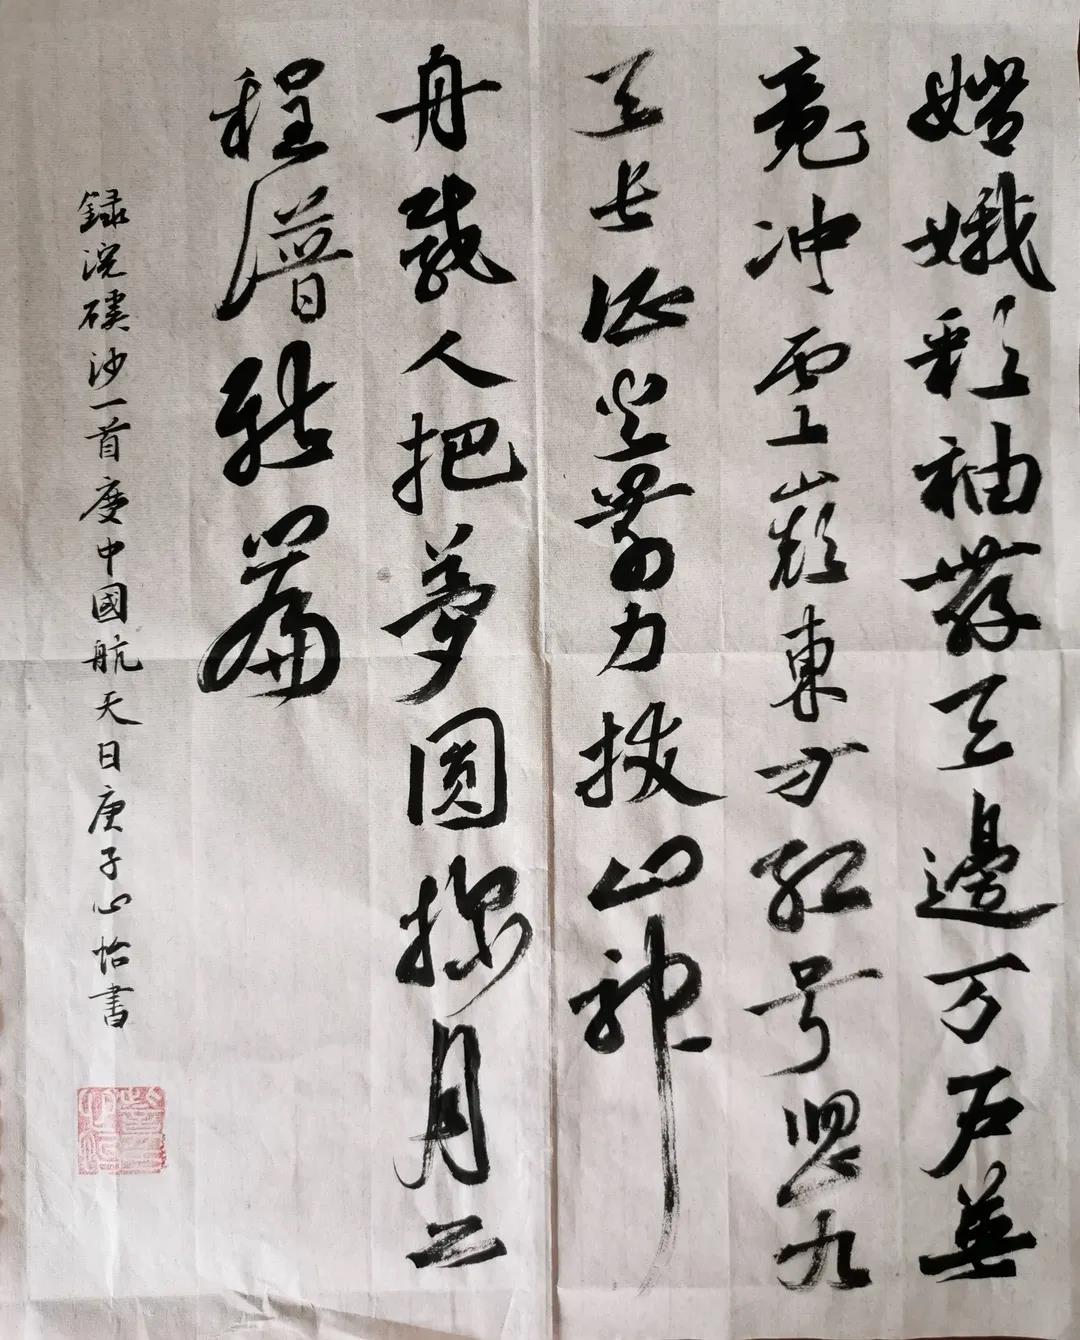 嫦娥彩袖舞天邊万户英
冲雲巅東方红号九
天长征箭力拔山神
舟载人把梦圆探月工
程谱新篇
録浣磎沙一首慶中國航天日庚子心怡書